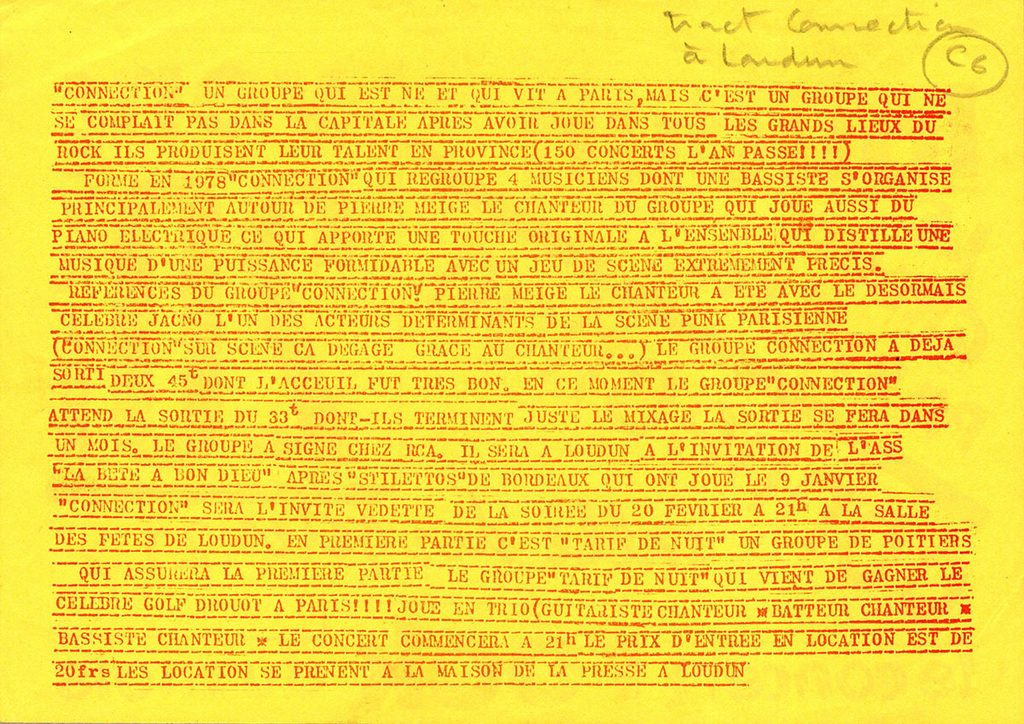 tract Connection
à Loudun
C6
"CONNECTION" UN GROUPE QUI EST NE ET QUI VIT A PARIS,MAIS C'EST UN GROUPE QUI NE
SE COMPLAIT PAS DANS LA CAPITALE APRES AVOIR JOUE DANS TOUS LES GRANDS LIEUX DU
ROCK ILS PRODUISENT LEUR TALENT EN PROVINCE(150 CONCERTS L'AN PASSE!!!!)
FORME EN 1978"CONNECTION"QUI REGROUPE 4 MUSICIENS DONT UNE BASSISTE S'ORGANISE
PRINCIPALEMENT AUTOUR DE PIERRE MEIGE LE CHANTEUR DU GROUPE QUI JOUE AUSSI DU
PIANO ELECTRIQUE CE QUI APPORTE UNE TOUCHE ORIGINALE A L'ENSENBLE QUI DISTILLE UNE
MUSIQUE D'UNE PUISSANCE FORMIDABLE AVEC UN JEU DE SCENE EXTREMEMENT PRECIS.
REFERENCES DU GROUPE"CONNECTION" PIERRE MEIGE LE CHANTEUR A ETE AVEC LE DESORMAIS
CELEBRE JACNO L'UN DES ACTEURS DETERMINANTS DE LA SCENE PUNK PARISIENNE
("CONNECTION"SUR SCENE CA DEGAGE GRACE AU CHANTEUR...) LE GROUPE CONNECTION A DEJA
SORTI DEUX 45t DONT L'ACCEUIL FUT TRES BON. EN CE MOMENT LE GROUPE"CONNECTION"
ATTEND LA SORTIE DU 33t DONT-ILS TERMINENT JUSTE LE MIXAGE LA SORTIE SE FERA DANS
UN MOIS. LE GROUPE A SIGNE CHEZ RCA. IL SERA A LOUDUN A L'INVITATION DE L'ASS
"LA BETE A BON DIEU" APRES "STILETTOS"DE BORDEAUX QUI ONT JOUE LE 9 JANVIER
"CONNECTION" SERA L'INVITE VEDETTE DE LA SOIREE DU 20 FEVRIER A 21h A LA SALLE
DES FETES DE LOUDUN. EN PREMIERE PARTIE C'EST "TARIF DE NUIT" UN GROUPE DE POITIERS
QUI ASSURERA LA PREMIERE PARTIE LE GROUPE"TARIF DE NUIT"QUI VIENT DE GAGNER LE
CELEBRE GOLF DROUOT A PARIS!!!!JOUE EN TRIO(GUITARISTE CHANTEUR * BATTEUR CHANTEUR *
BASSISTE CHANTEUR * LE CONCERT COMMENCERA A 21h LE PRIX D'ENTREE EN LOCATION EST DE
20frs LES LOCATION SE PRENENT A LA MAISON DE LA PRESSE A LOUDUN